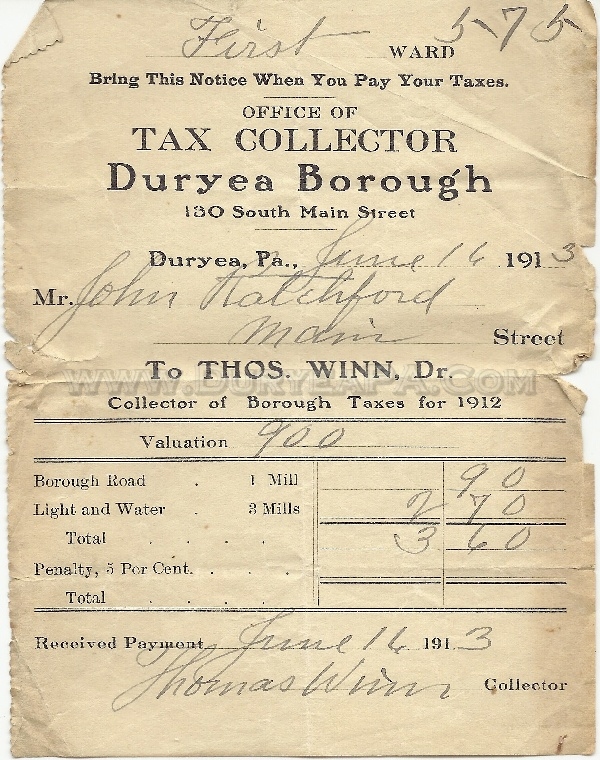 First WARD 575
Bring This Notice When You Pay Your Taxes.
OFFICE OF
TAX COLLECTOR
Duryea Borough
130 South Main Street
Duryea, Pa., June 16 1913
Mr. John Ratchford
Main Street
To THOS. WINN, Dr.
WWW.DURYEAPA.COM
Collector of Borough Taxes for 1912
Valuation 900
Borough Road . 1 Mill 90
Light and Water . 3 Mills 2 70
Total . . . . 3 60
Penalty, 5 Per Cent. . . .
Total . . . .
Received Payment June 16 1913
Thomas Winn Collector